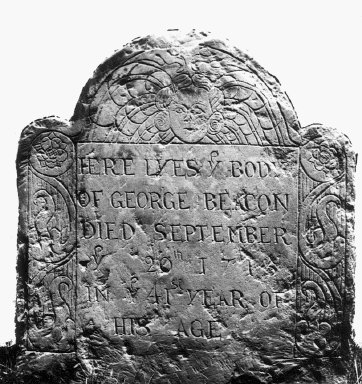 HERE LYES yᵉ BODY
OF GEORGE BEACON
DIED SEPTEMBER
yᵉ 20ᵗʰ 171
IN yᵉ 41ˢᵗ YEAR OF
HIS AGE